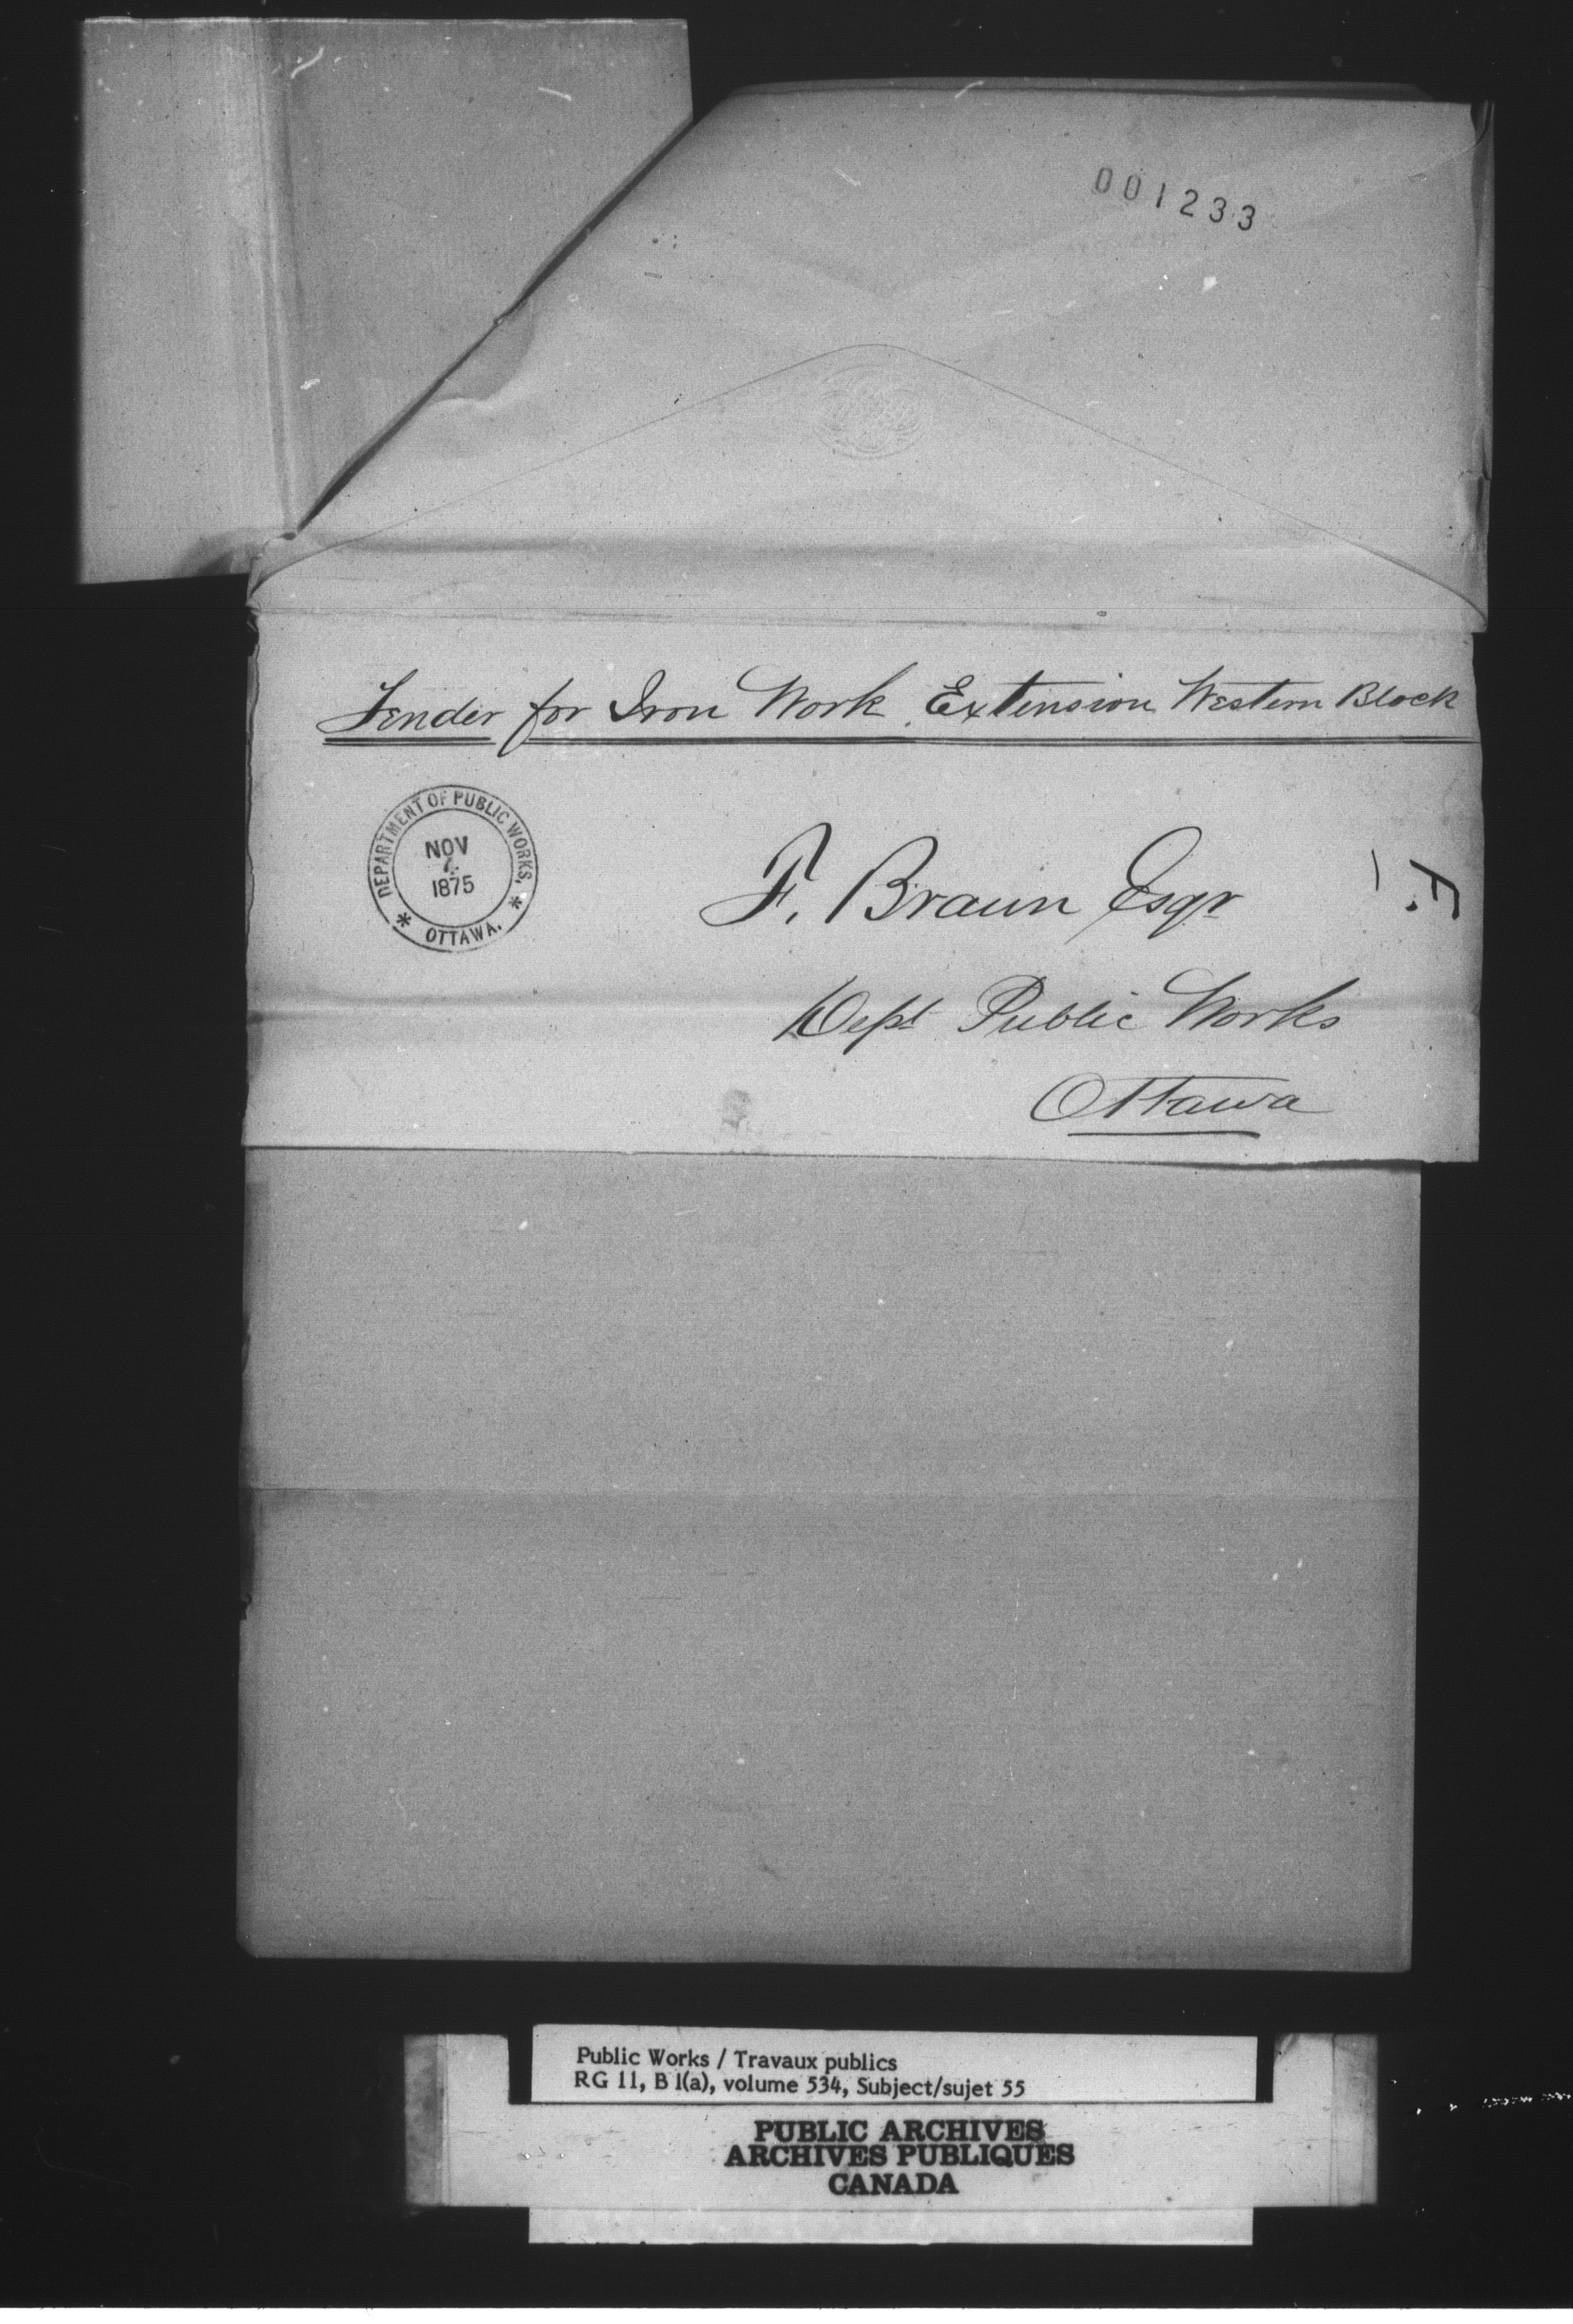 001233
Tender for Iron Work Extension Western Block
DEPARTMENT OF PUBLIC WORKS,
NOV
1875
* OTTAWA. *
F. Braun Esqr
Dept Public Works
Ottawa
Public Works / Travaux publics
RG 11, B 1(a), volume 534, Subject/sujet 55
PUBLIC ARCHIVES
ARCHIVES PUBLIQUES
CANADA